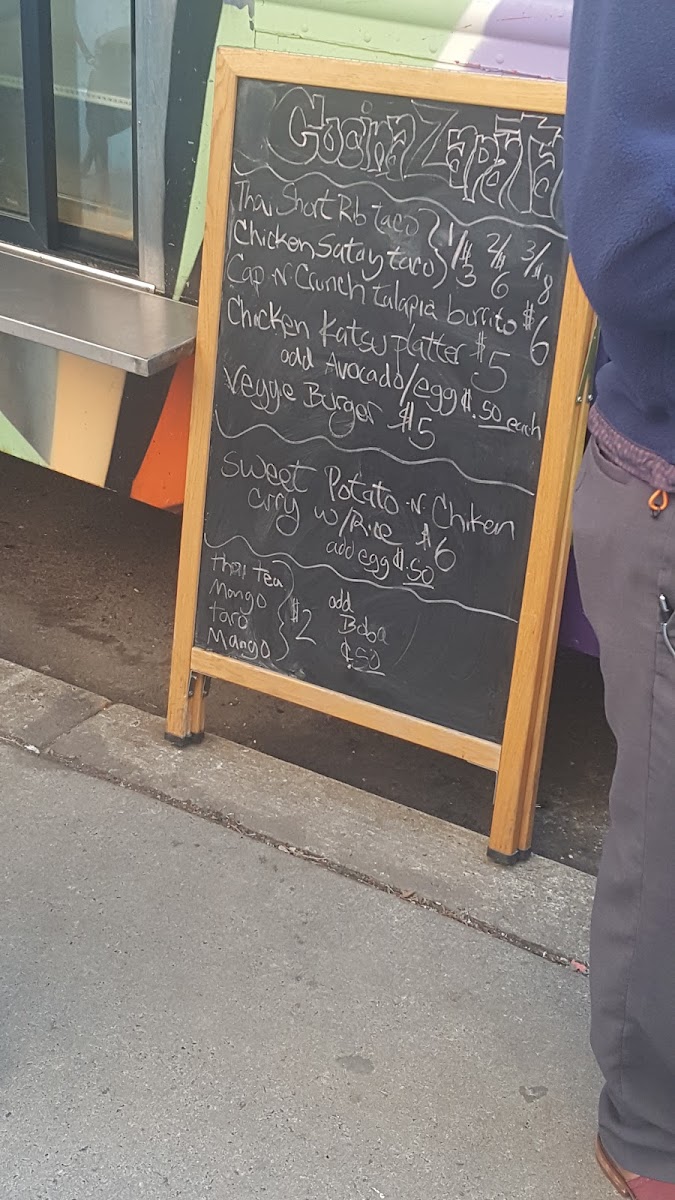 Cocina Zapata
Thai Short Rib taco
Chicken Satay taco } 1/$3 2/$6 3/$8
Cap·N·Crunch talapia burrito $6
Chicken Katsu platter $5
add Avocado/egg $.50 each
Veggie Burger $5
Sweet Potato ·N· Chiken
Curry w/Rice $6
add egg $.50
thai Tea
Mango
taro
Mango } $2
add
Boba
$.50